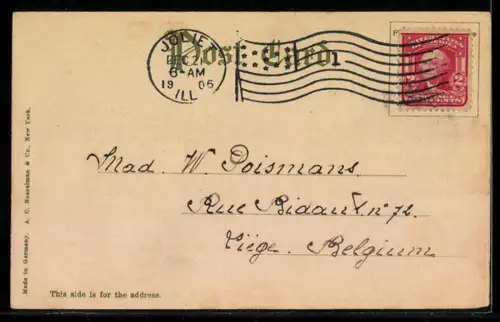 Post Card
JOLIET
DEC 2
6-AM
1906
ILL
1
Mad. W. Poismans.
Rue Bidaut. n° 72.
Liége. Belgium
Made in Germany. A. C. Bosselman & Co., New York.
This side is for the address.